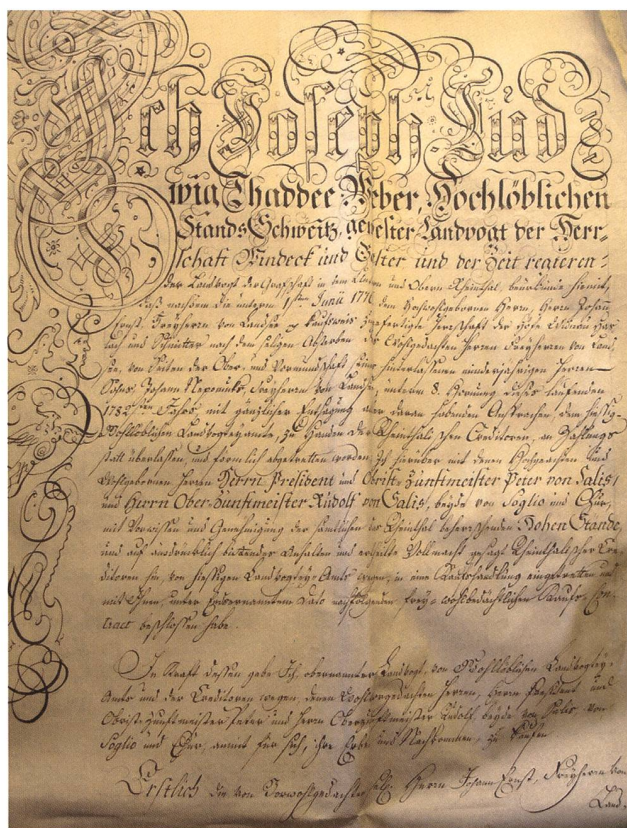 Ich Joseph Lud=
wig Thaddee Weber, Hochlöblichen
Stands Schweitz, gewester Landvogt der Herr=
schaft Windeck und Gaster und der Zeit regieren=
der Landvogt der Grafschaft in dem Untern und Obern Rheinthal, beurkunde hiemit,
daß nachdem die unterm 1ten Junii 1776 dem Hochwohlgebornen Herrn, Herrn Johann
Ernst, Freyherrn von Landsee Kaufsweis zugefertigte Herrschaft der Höfe Widnau Has=
lach und Schmitter nach dem seligen Absterben des Wohlgedachten Herrn Freyherrn von Land=
see, von Seiten der Ober- und Vormundschaft seines hinterlassenen minderjährigen Herrn
Sohns Johann Nepomuk, Freyherrn von Landsee, unterm 8. Hornung dieses laufenden
1782sten Jahrs, mit gänzlicher Entsagung aller daran habenden Ansprachen dem hiesig=
Wohllöblichen Landvogteyamte, zu Handen der Rheinthalischen Creditoren, an Zahlungs
statt überlassen und förmlich abgetretten worden, Ich hierüber mit denen Hochgeachten und
Wohlgebornen Herren Herrn President und Obrist-Zunftmeister Peter von Salis,
und Herrn Ober-Zunftmeister Rudolf von Salis, beyde von Soglio und Chur,
mit Vorwissen und Genehmigung der sämtlichen das Rheinthal beherrschenden Hohen Stände,
und auf ausdrücklich bittendes Anhalten und ertheilte Vollmacht gesagt Rheinthalischer Cre=
ditoren hin, von hiesigen Landvogtey-Amts wegen, in eine Kaufshandlung eingetretten und
mit Ihnen, unter Endsernanntem Dato nachfolgenden frey= wohlbedächtlichen Kaufs-Con=
tract beschlossen habe.
In Kraft dessen gebe Ich obernannter Landvogt, von Wohllöblichen Landvogtey=
Amts und der Creditoren wegen, denen Wohlorgedachten Herren, Herrn President und
Obrist-Zunftmeister Peter und Herrn Oberzunftmeister Rudolf, beyde von Salis von
Soglio und Chur, anmit für sich, ihre Erbe und Nachkommen, zu kaufen
Erstlich die von Vorwohlgedachter selg. Herrn Johann Ernst, Freyherrn von
Land=